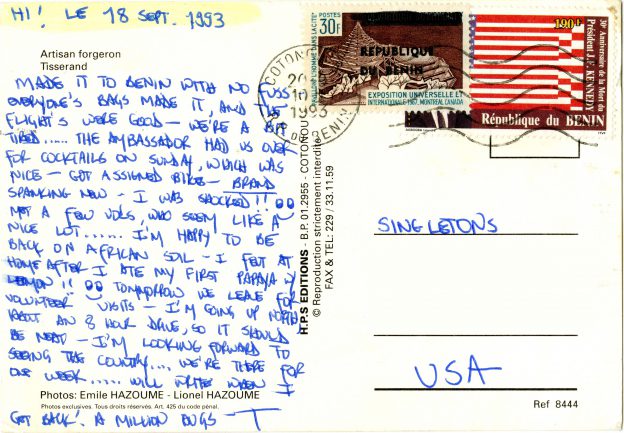 HI! LE 18 SEPT. 1993
Artisan forgeron
Tisserand
MADE IT TO BENIN WITH NO FUSS
EVERYONE'S BAGS MADE IT, AND THE
FLIGHT'S WERE GOOD - WE'RE A BIT
TIRED..... THE AMBASSADOR HAD US OVER
FOR COCKTAILS ON SUNDAY, WHICH WAS
NICE - GOT ASSIGNED BIKES - BRAND
SPANKING NEW - I WAS SHOCKED!!
MET A FEW VOLS, WHO SEEM LIKE A
NICE LOT...... I'M HAPPY TO BE
BACK ON AFRICAN SOIL - I FELT AT
HOME AFTER I ATE MY FIRST PAPAYA W/
LEMON!! TOMORROW WE LEAVE FOR
VOLUNTEER VISITS - I'M GOING UP NORTH
ABOUT AN 8 HOUR DRIVE, SO IT SHOULD
BE NEAT - I'M LOOKING FORWARD TO
SEEING THE COUNTRY.... WE'RE THERE FOR
ONE WEEK..... WILL WRITE WHEN I
Photos: Emile HAZOUME - Lionel HAZOUME
Photos exclusives. Tous droits réservés. Art. 425 du code pénal.
GET BACK! A MILLION HUGS - T
H.P.S EDITIONS - B.P. 01.2955 - COTONOU
© Reproduction strictement interdite
FAX & TEL: 229 / 33.11.59
POSTES
30F
REPUBLIQUE
DU BENIN
EXPOSITION UNIVERSELLE ET
INTERNATIONALE 1967, MONTREAL CANADA
COTONOU
1993
BENIN
190f
30e Anniversaire de la Mort du
Président J.F. KENNEDY
République du BENIN
SINGLETONS
USA
Ref 8444